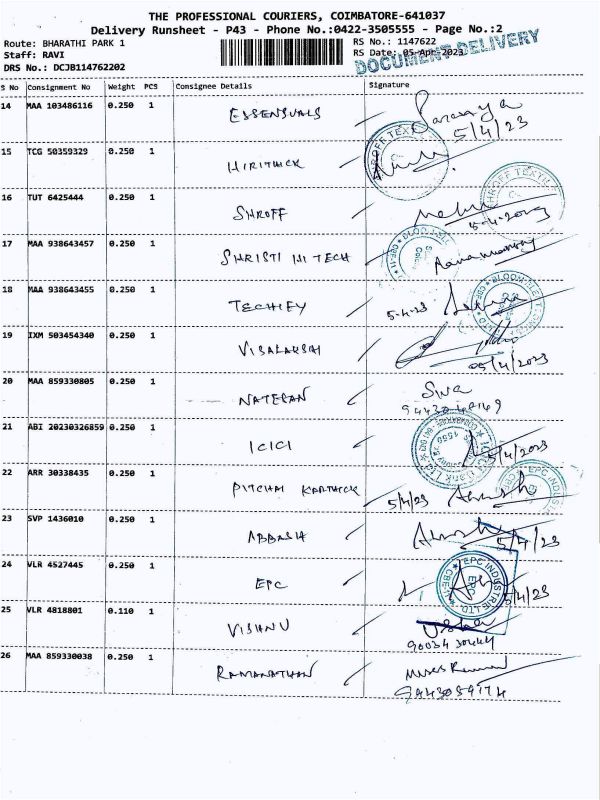 THE PROFESSIONAL COURIERS, COIMBATORE-641037
Delivery Runsheet - P43 - Phone No.:0422-3505555 - Page No.:2
Route: BHARATHI PARK 1
RS No.: 1147622
Staff: RAVI
RS Date: 05-Apr-2023
DRS No.: DCJB114762202
DOCUMENT DELIVERY
S No Consignment No Weight PCS Consignee Details Signature
14 MAA 103486116 0.250 1 ESSENSUALS
5/4/23
15 TCG 50359329 0.250 1 HIRITHICK
SHROFF TEXTILE
16 TUT 6425444 0.250 1 SHROFF
SHROFF TEXTILE
5-4-2023
17 MAA 938643457 0.250 1 SHRISTI HI TECH
18 MAA 938643455 0.250 1 TECHIFY 5-4-23
19 IXM 503454340 0.250 1 VISALAKSHI
05/4/2023
20 MAA 859330805 0.250 1 NATESAN Siva
21 ABI 20230326859 0.250 1 ICICI
5/4/2023
22 ARR 30338435 0.250 1 PITCHAI KARTHICK 5/4/23
EPC INDUSTRIE
23 SVP 1436010 0.250 1 ABBASH 5/4/23
24 VLR 4527445 0.250 1 EPC 5/4/23
EPC INDUSTRIE LTD
25 VLR 4818801 0.110 1 VISHNU Usha
9003430444
26 MAA 859330038 0.250 1 RAMANATHAN
9443089174